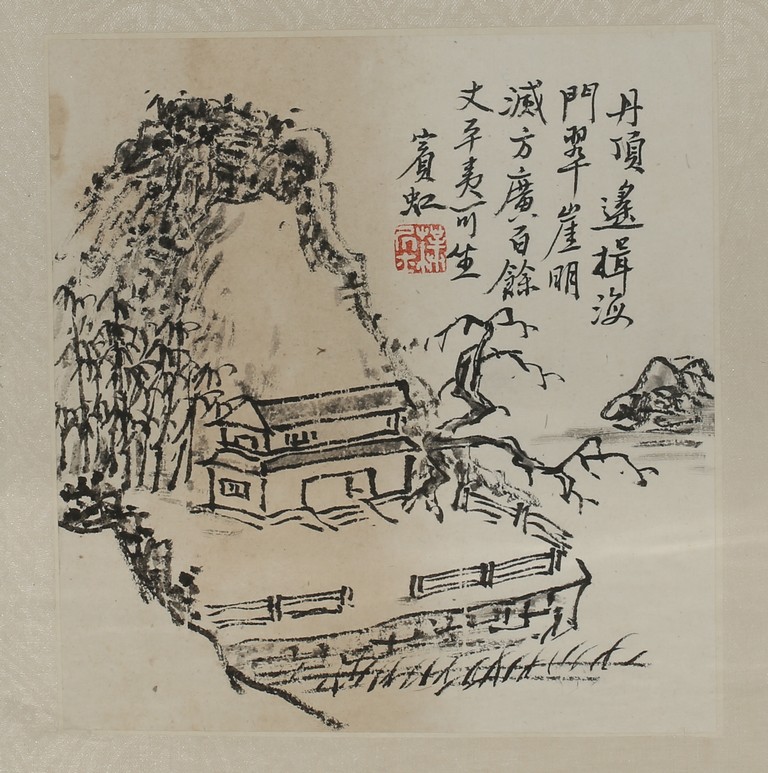 丹頂遙揖海
門翠崖明
滅方廣百餘
丈平夷可坐
賓虹